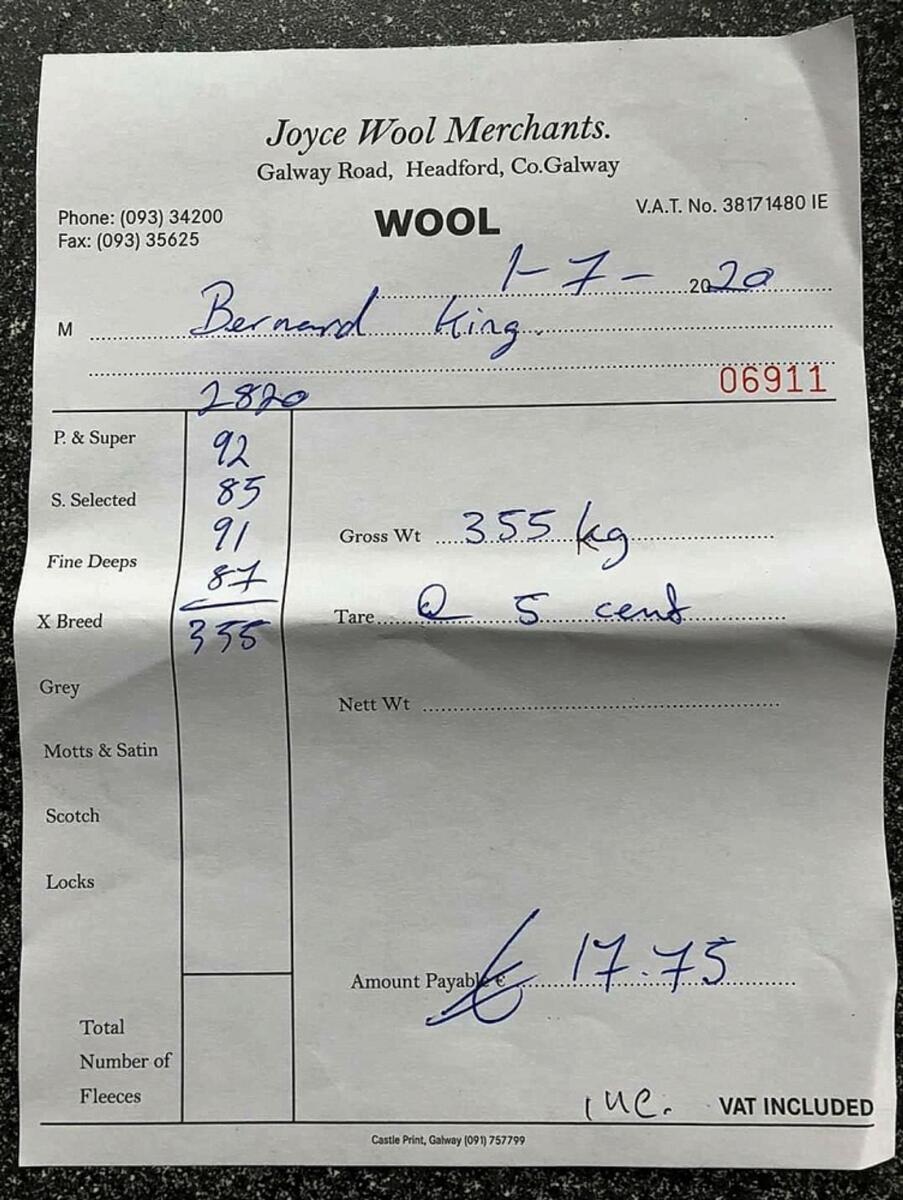 Joyce Wool Merchants.
Galway Road, Headford, Co.Galway
Phone: (093) 34200
Fax: (093) 35625
WOOL
V.A.T. No. 38171480 IE
1-7-2020
M Bernard King.
2820
06911
P. & Super 92
S. Selected 85
91
Fine Deeps 87
X Breed 355
Grey
Motts & Satin
Scotch
Locks
Total
Number of
Fleeces
Gross Wt 355 kg
Tare @ 5 cent
Nett Wt
Amount Payable € 17.75
inc. VAT INCLUDED
Castle Print, Galway (091) 757799